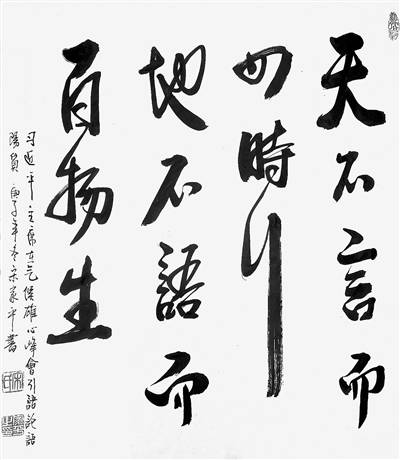 天不言而
四時行
地不語而
百物生
习近平主席在气候雄心峰會引語論語
陽貨 庚子年冬宋平書